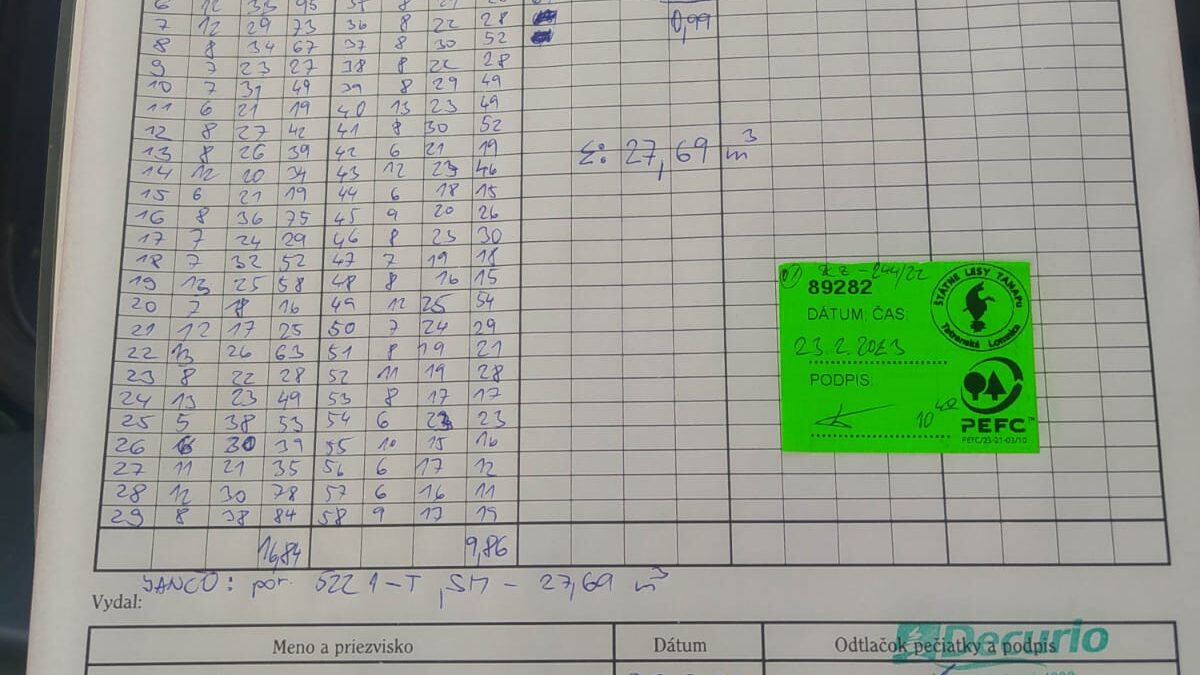 7 12 29 73 36 8 22 28
0,99
8 8 34 67 37 8 30 52
9 7 23 27 38 8 22 28
10 7 31 49 39 8 29 49
11 6 21 19 40 13 23 49
12 8 27 42 41 8 30 52
13 8 26 39 42 6 21 19
Σ: 27,69 m³
14 12 20 34 43 12 23 46
15 6 21 19 44 6 18 15
16 8 36 75 45 9 20 26
17 7 24 29 46 8 23 30
18 7 32 52 47 7 19 18
19 13 25 58 48 8 16 15
20 7 18 16 49 12 25 54
21 12 17 25 50 7 24 29
22 13 26 63 51 8 19 21
23 8 22 28 52 11 19 28
24 13 23 49 53 8 17 17
25 5 38 53 54 6 23
26 6 30 39 55 10 15 16
27 11 21 35 56 6 17 12
28 12 30 78 57 6 16 11
29 8 38 84 58 9 17 19
16,84 9,86
244/22
89282
DÁTUM, ČAS:
23.2.2023
PODPIS:
10 40
ŠTÁTNE LESY TANAPu
Tatranská Lomnica
PEFC™
PEFC/23-21-03/10
JANČO: por. 522 1-T, SM - 27,69 m³
Vydal:
Meno a priezvisko Dátum Odtlačok pečiatky a podpis
Decurio